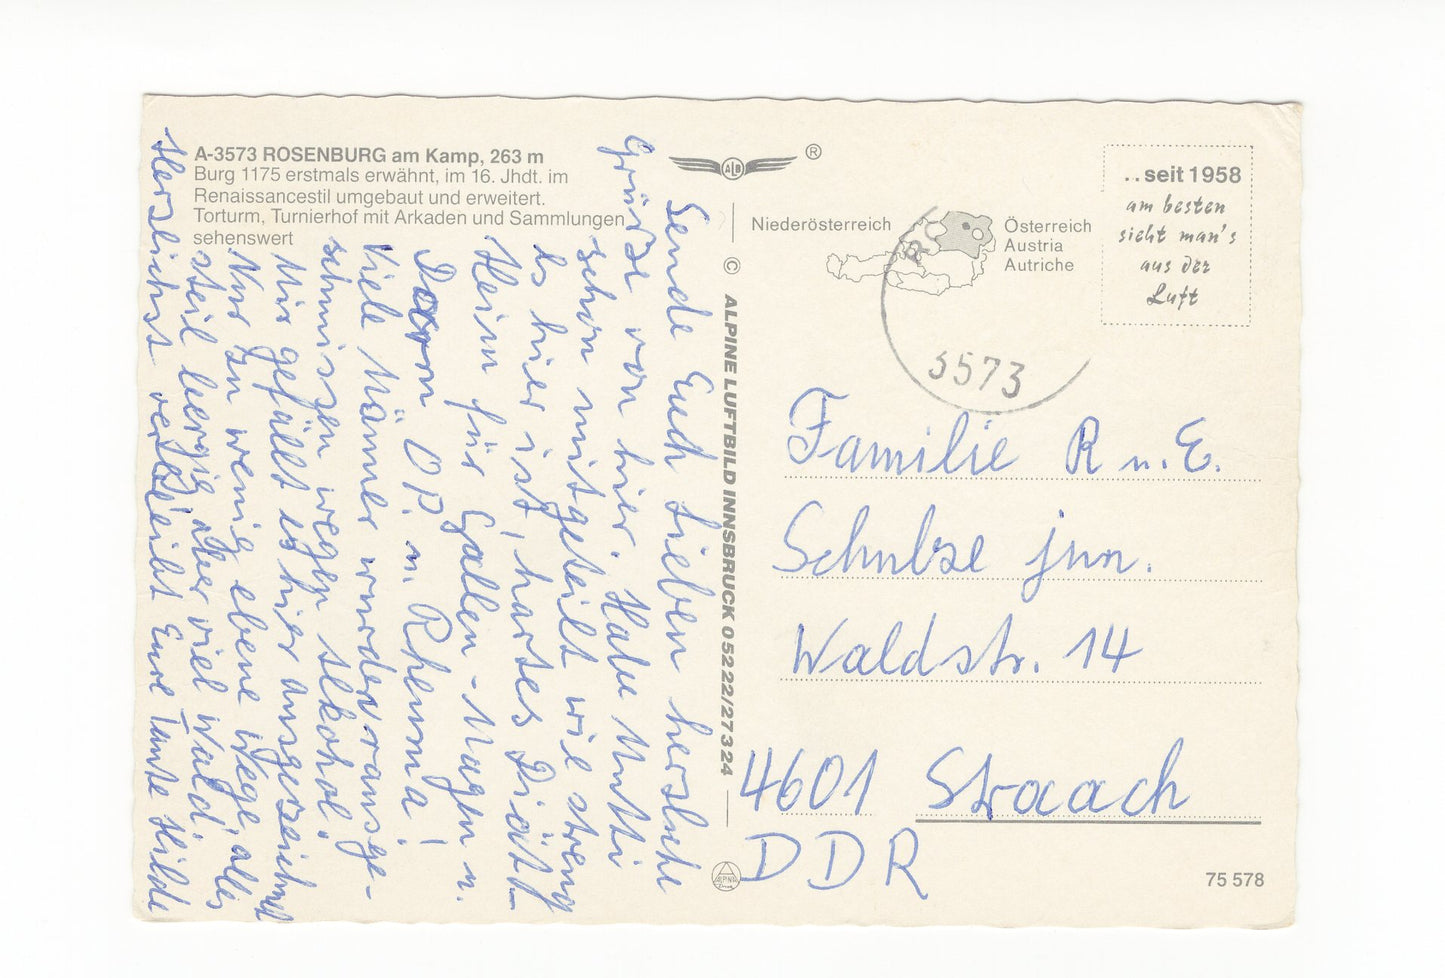 A-3573 ROSENBURG am Kamp, 263 m
Burg 1175 erstmals erwähnt, im 16. Jhdt. im
Renaissancestil umgebaut und erweitert.
Torturm, Turnierhof mit Arkaden und Sammlungen
sehenswert
Sende Euch Lieben herzliche
Grüße von hier. Habe Mutti
schon mitgeteilt wie streng
es hier ist, hartes Diät-
Heim für Gallen-Magen u.
Darm OP. u. Rheuma!
Viele Männer wurden rausge-
schmissen wegen Alkohol.
Mir gefällt es hier ausgezeichnet
Nur zu wenig ebene Wege, alles
steil bergig aber viel Wald.
Herzlichst verbleibt Eure Tante Hilde
ALB ®
© ALPINE LUFTBILD INNSBRUCK 05222/27324
Niederösterreich
Österreich
Austria
Autriche
..seit 1958
am besten
sieht man's
aus der
Luft
3573
Familie R u. E.
Schulze jun.
Waldstr. 14
4601 Straach
DDR
75 578